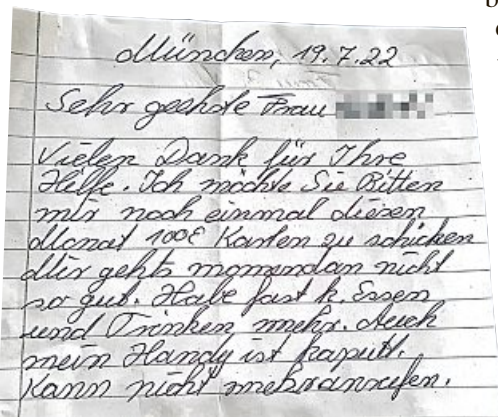 München, 19.7.22
Sehr geehrte Frau
Vielen Dank für Ihre
Hilfe. Ich möchte Sie Bitten
mir noch einmal diesen
Monat 100€ Karten zu schicken
Mir gehts momendan nicht
so gut. Habe fast k. Essen
und Trinken mehr. Auch
mein Handy ist kaputt.
Kann nicht mehranrufen.